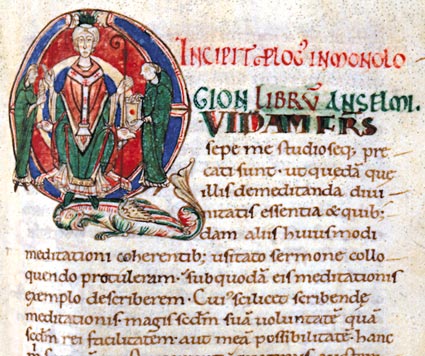 INCIPIT PLOG' IN MONOLO
GION LIBRV̄ ANSELMI.
QVIDAM FRS
sepe me studioseq; pre
cati sunt. ut quedā que
illis de meditanda diui
nitatis essentia & quib;
dam aliis huiusmodi
meditationi coherentib; usitato sermone collo
quendo protuleram. sub quodā eis meditationis
exemplo describerem. Cui' scilicet scribendę
meditationis magis scdm suā uoluntatē quā
scdm rei facilitatem aut meā possibilitatē hanc